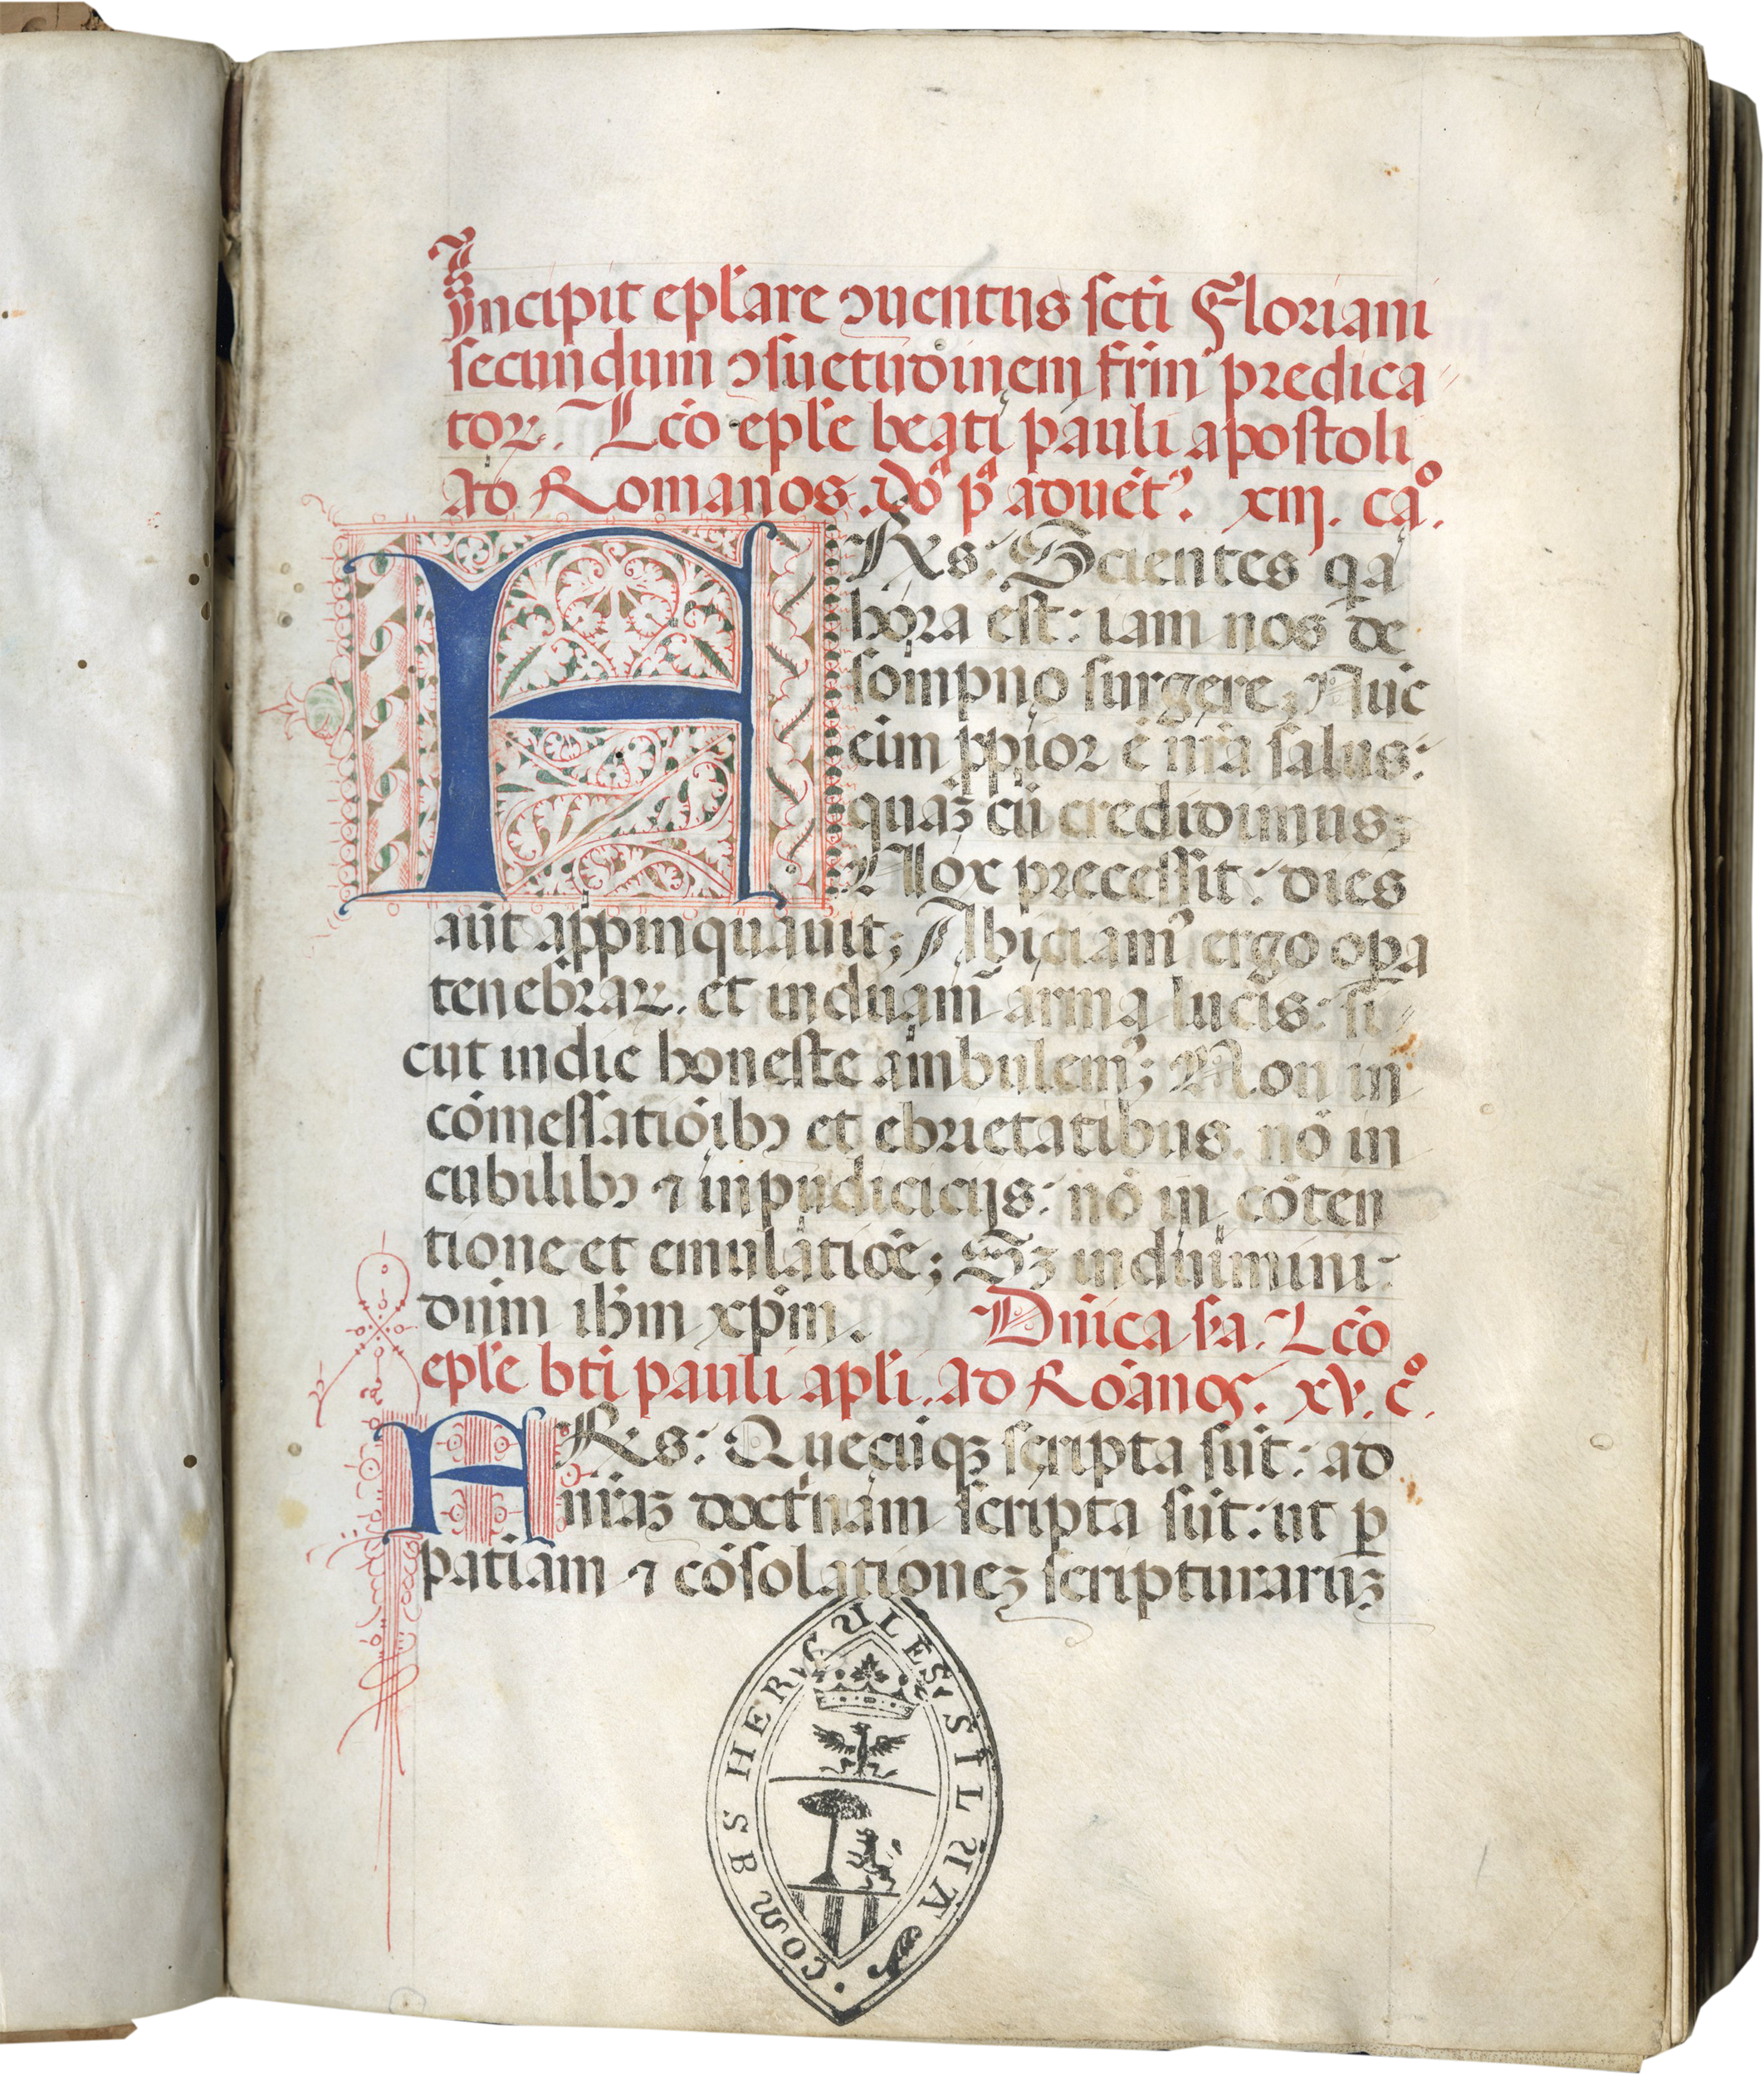 Incipit epl'are ↄuentus sc̄ti Floriani
secundum ↄsuetudinem fr̄m predica⸗
toꝝ. Lc̄o epl'e beati pauli apostoli
ad Romanos. do᷒ pª aduēt᷒. xiij. ca°.
FRs: Scientes q̇a
hora est: iam nos de
sompno surgere; Nūc
eim̄ ꝓpior ē nr̄a salus:
quaꝫ cū credidimus;
Nox precessit: dies
aūt appinquauit; Abiciam᷒ ergo oꝑa
tenebraꝝ. et induam᷒ arma lucis: si⸗
cut in die honeste ambulem᷒; Non in
cōmessatiōibꝰ et ebrietatibus. nō in
cubilibꝰ ⁊ inpudicicijs: nō in cōten
tione et emulatiōe; Sꝫ induimini:
dn̄m ih̄m xp̄m. Dn̄ica sa. Lc̄o
epl'e bt̄i pauli apl'i. ad Rōanos. xv. c°.
FRs: Quecūqꝫ scripta sūt: ad
nr̄aꝫ doctⁱnam scripta sūt: ut ꝑ
patiam̄ ⁊ cōsolationeꝫ scripturaruꝫ
COM BS HERCULES SILUA